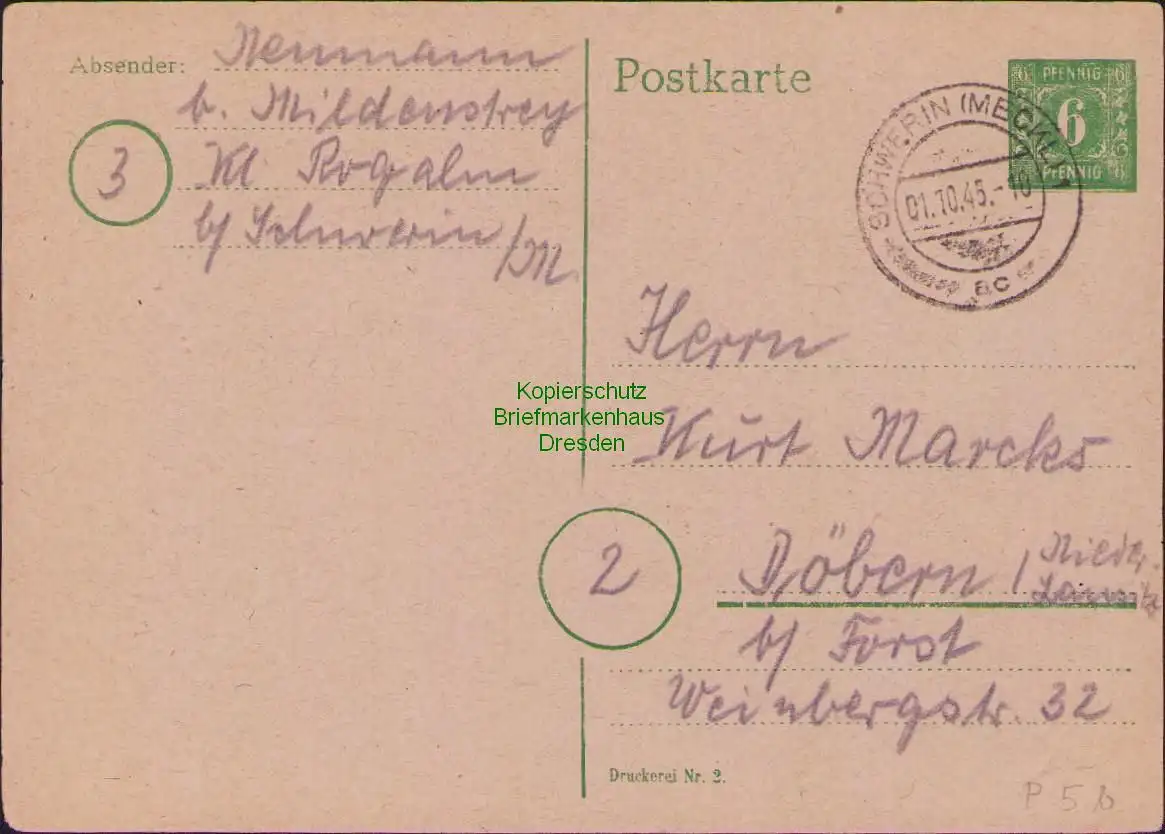 Absender: Neumann
b. Mildenstrey
3
Kl Rogahn
b/ Schwerin /M.
Postkarte
6 PFENNIG 6
6
6 PFENNIG 6
SCHWERIN (MECKL) 1
01.10.45.-10
ac
Herrn
Kopierschutz
Briefmarkenhaus
Dresden
Kurt Marcks
2
Döbern / Nieder-
Lausitz
b/ Forst
Weinbergstr. 32
Druckerei Nr. 2.
P 5 b